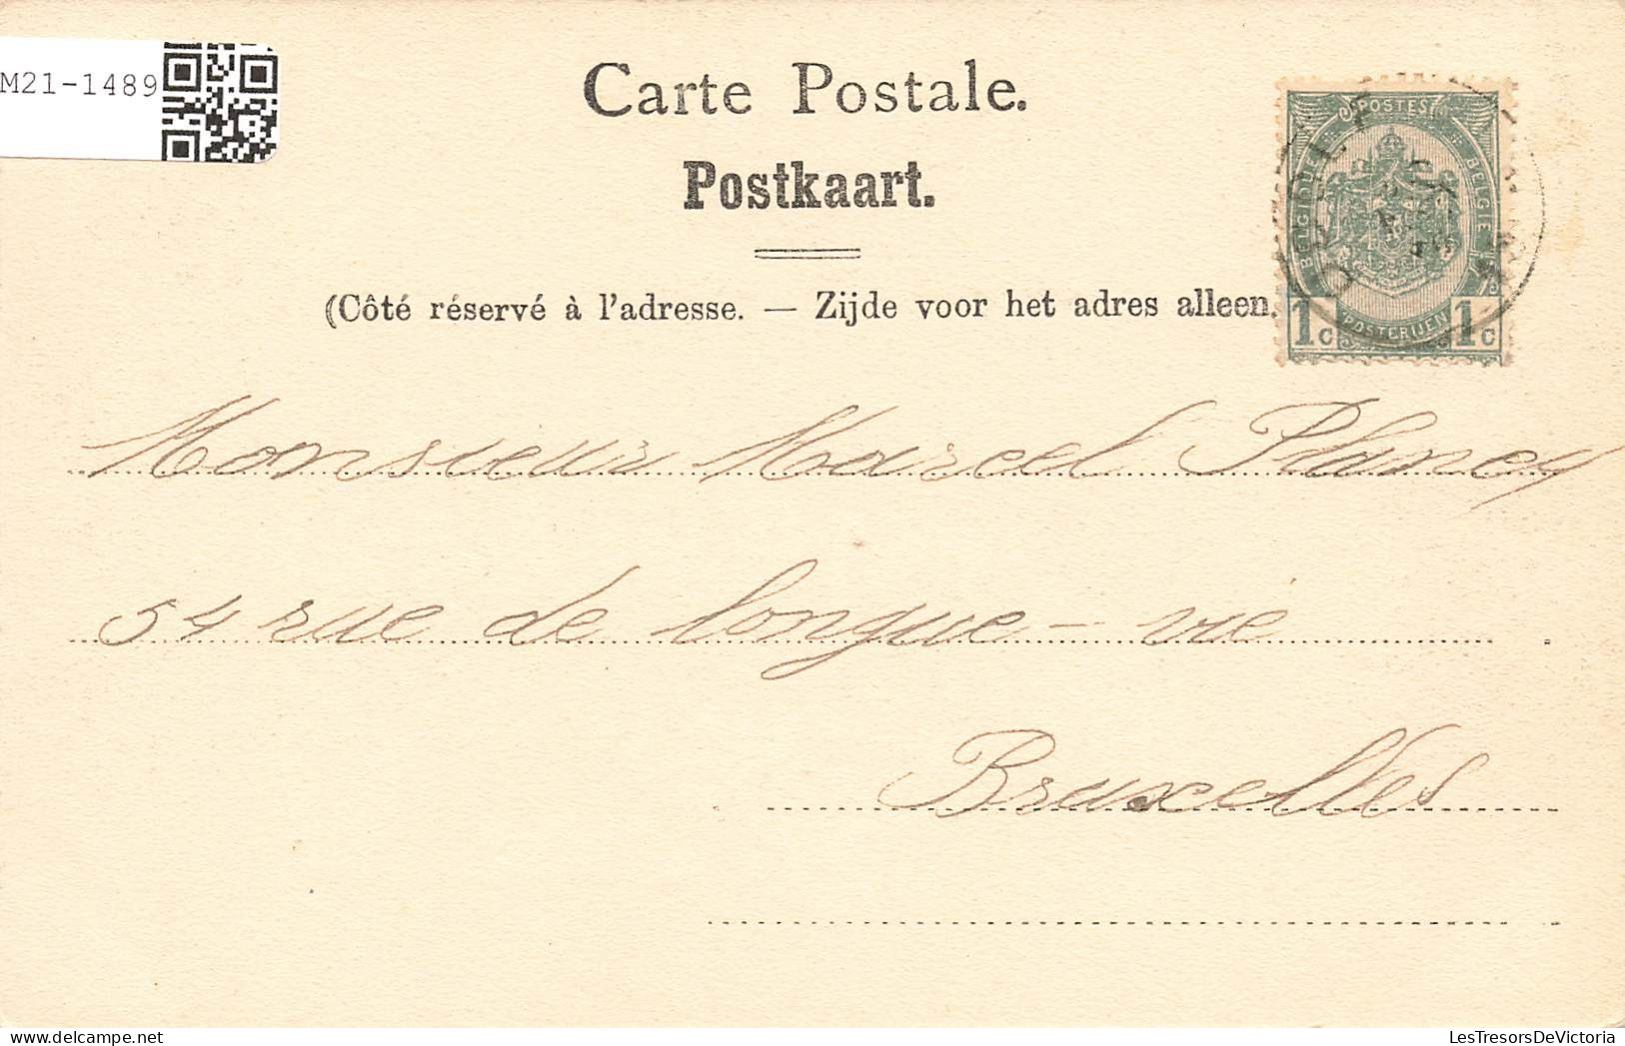 M21-1489
Carte Postale.
Postkaart.
(Côté réservé à l'adresse. — Zijde voor het adres alleen.
POSTES
BELGIQUE BELGIE
1c POSTERIJEN 1c
Monsieur Marcel Plancy
54 rue de longue - vie
Bruxelles
LesTresorsDeVictoria